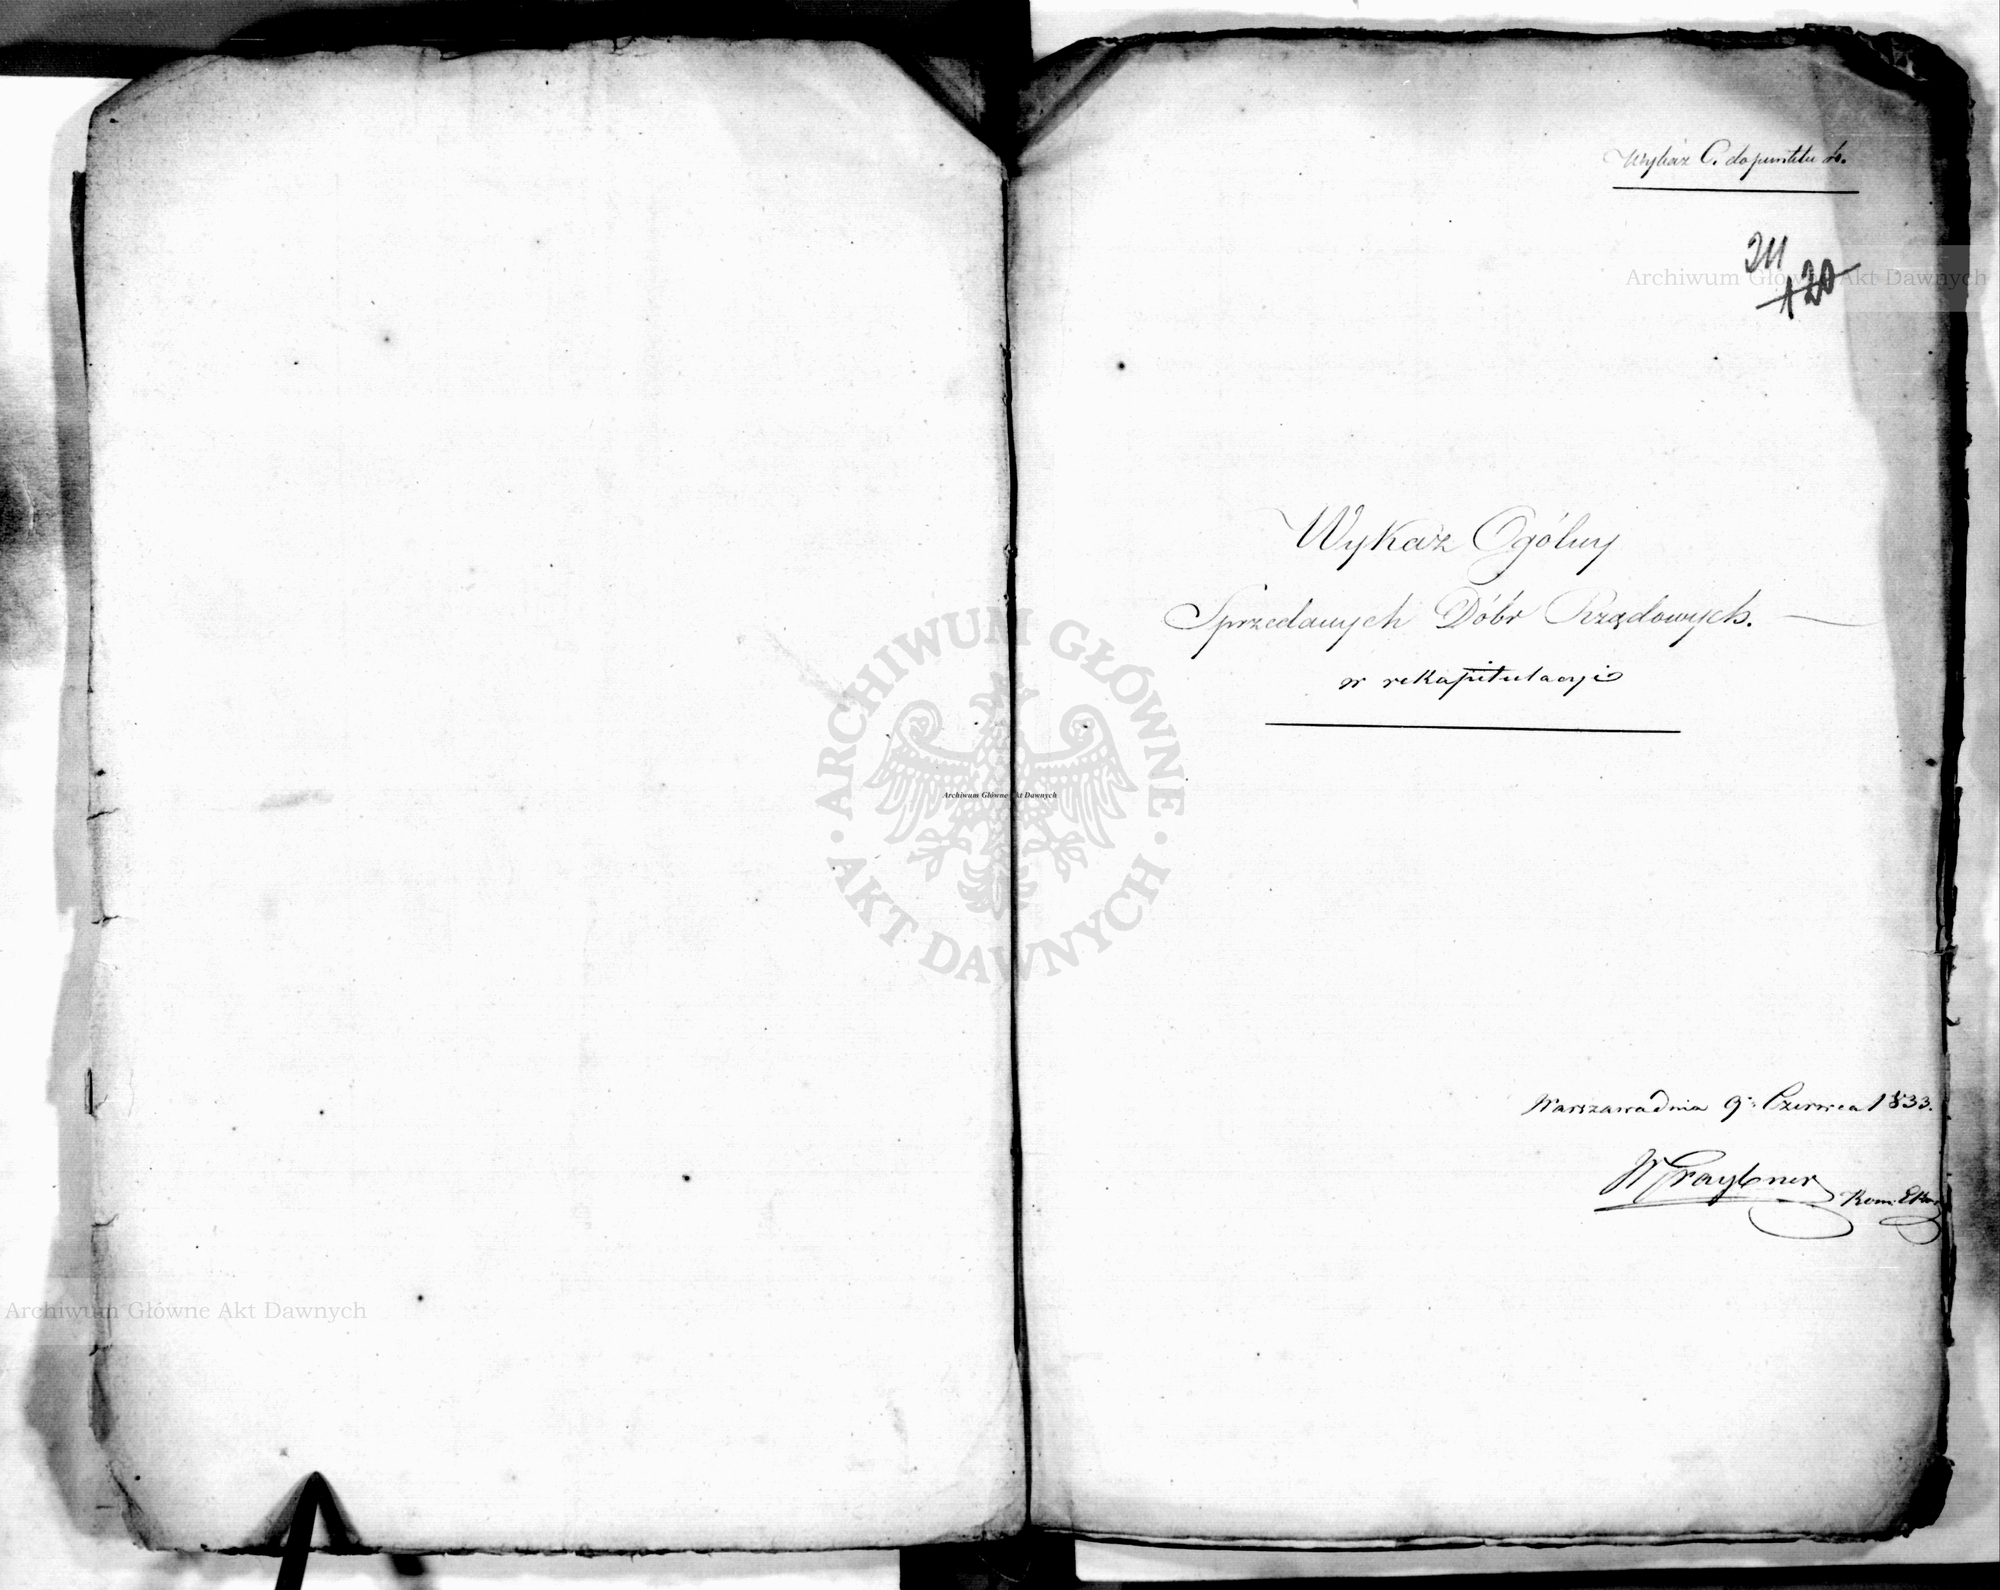 Wykaz C. do punktu
211
120
Wykaz Ogólny
Sprzedanych Dóbr Rządowych.
w rekapitulacyi
Warszawa dnia 9. Czerwca 1833.
Archiwum Główne Akt Dawnych
ARCHIWUM GŁÓWNE
AKT DAWNYCH
Archiwum Główne Akt Dawnych
Archiwum Główne Akt Dawnych